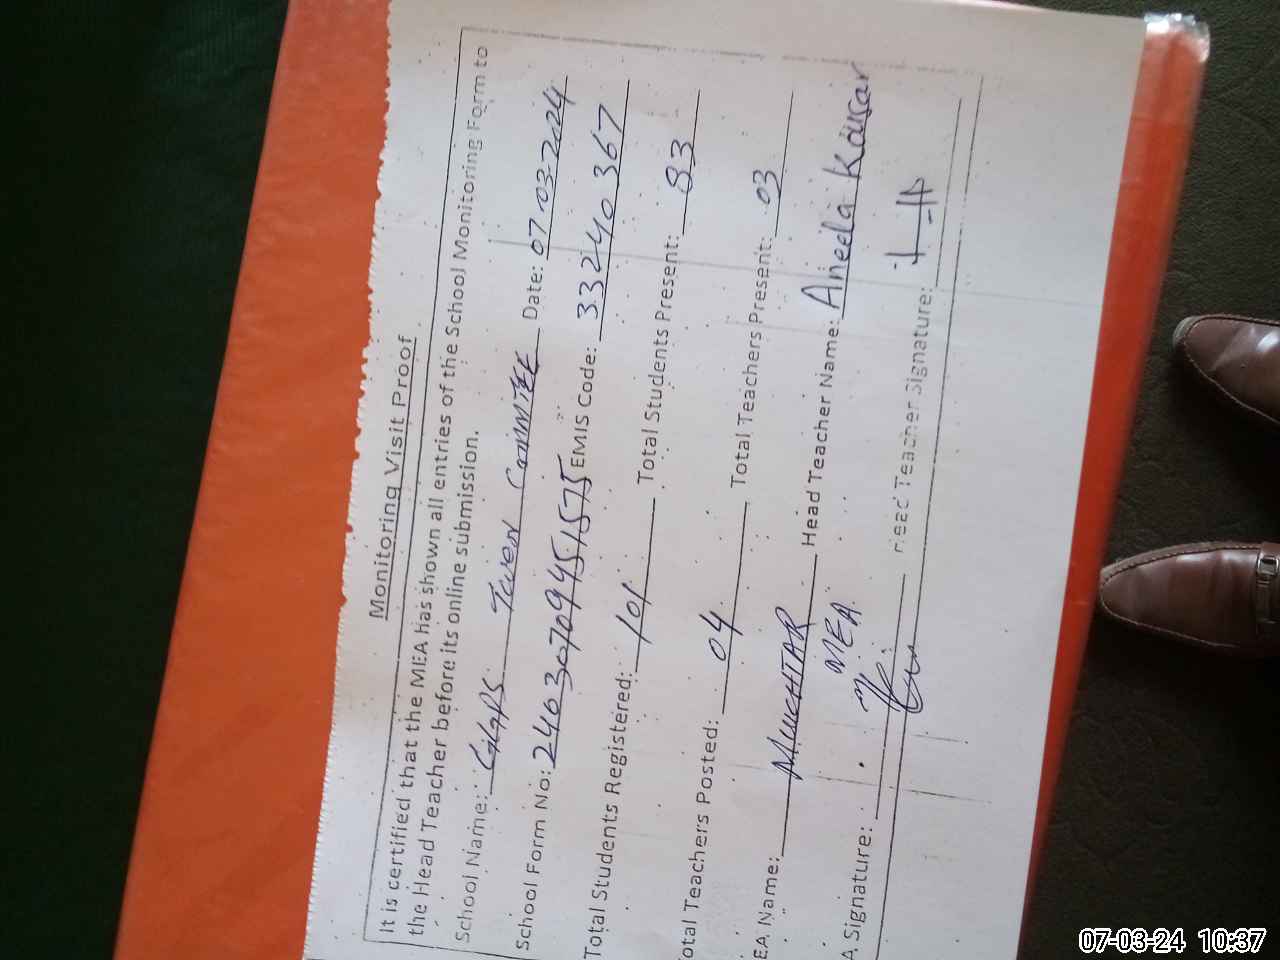 Monitoring Visit Proof
It is certified that the MEA has shown all entries of the School Monitoring Form to
the Head Teacher before its online submission.
School Name: GGPS Town Committee Date: 07-03-2024
School Form No: 24030709451575 EMIS Code: 33240367
Total Students Registered: 101 Total Students Present: 83
otal Teachers Posted: 04 Total Teachers Present: 03
EA Name: MUKHTAR Head Teacher Name: Aneela Kousar
MEA
A Signature: Head Teacher Signature:
07-03-24 10:37